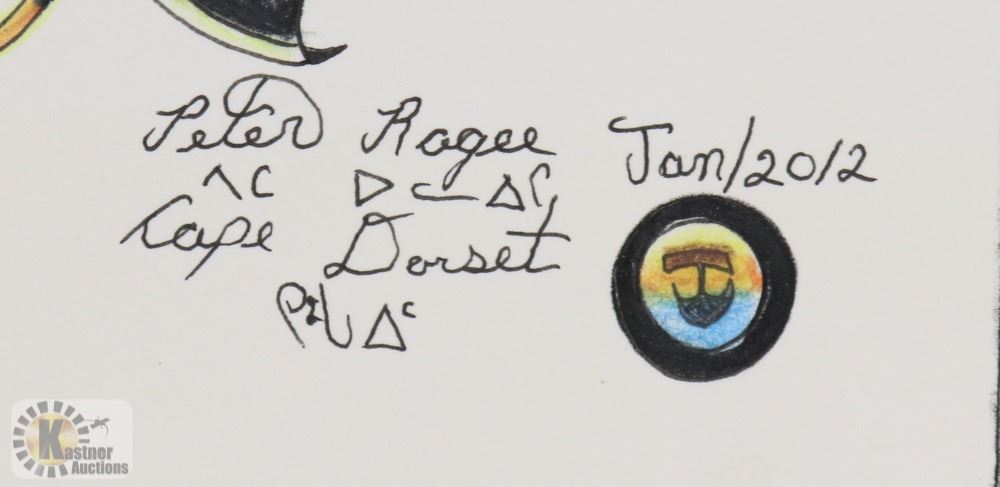 Peter Ragee Jan/2012
ᐱᑕ ᐅᓚᐃᒋ
Cape Dorset
ᑭᙵᐃᑦ
Kastner
Auctions